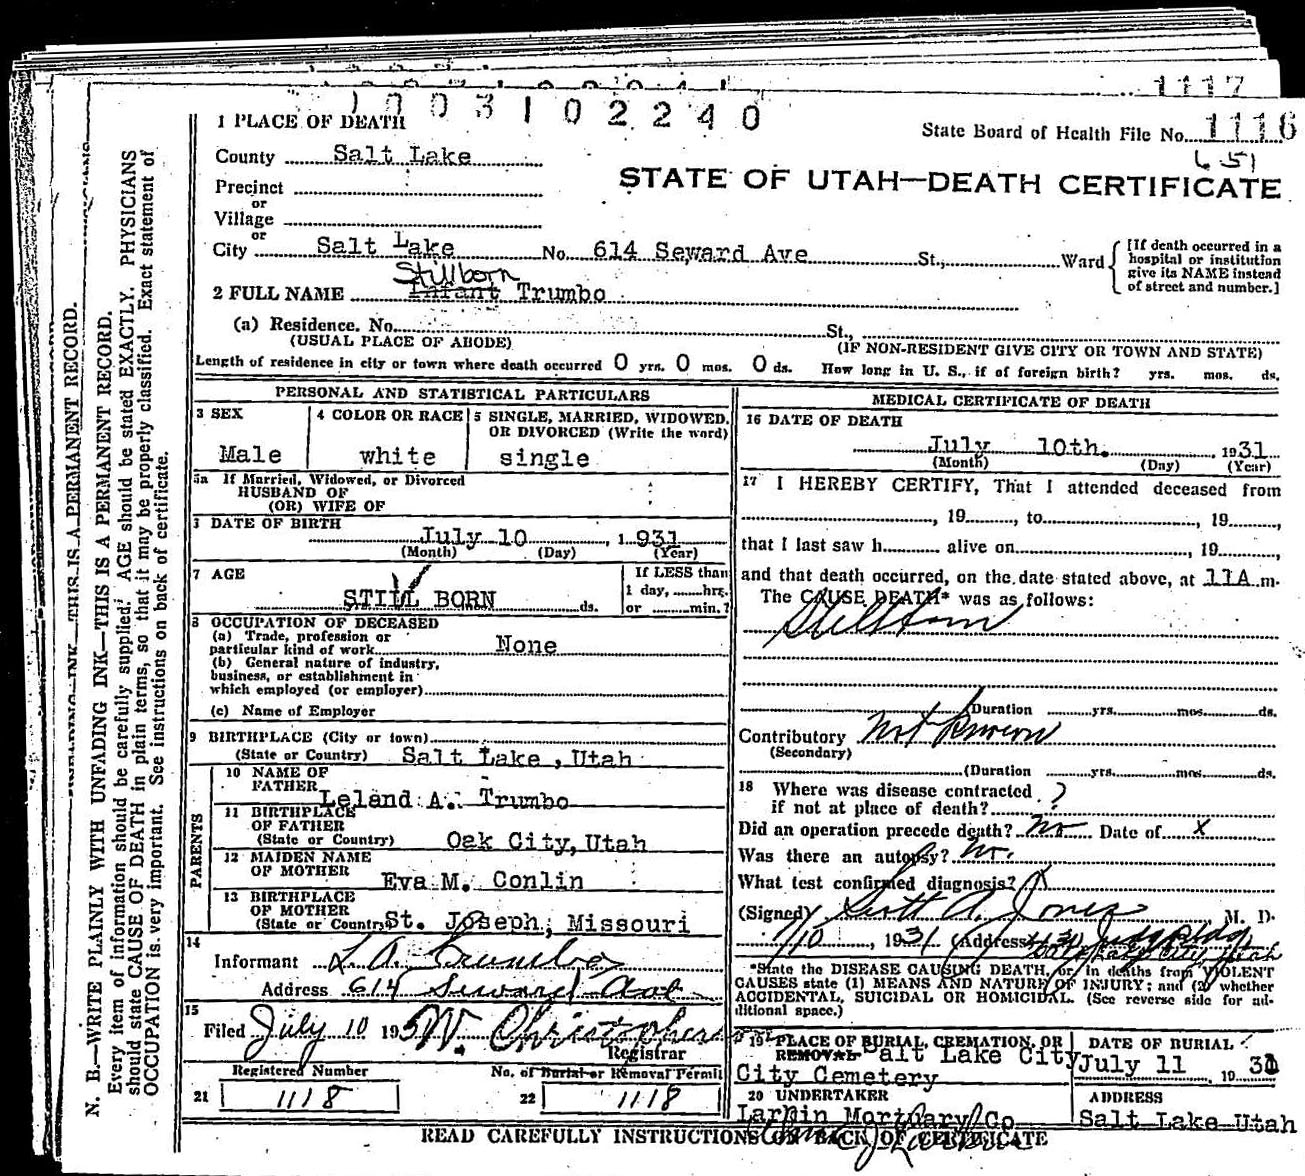 1117
1003102240
1 PLACE OF DEATH
State Board of Health File No. 1116
651
County Salt Lake
STATE OF UTAH—DEATH CERTIFICATE
Precinct
or
Village
or
City Salt Lake No. 614 Seward Ave St., Ward [If death occurred in a hospital or institution give its NAME instead of street and number.]
Stillborn
2 FULL NAME Infant Trumbo
(a) Residence. No. St.,
(USUAL PLACE OF ABODE) (IF NON-RESIDENT GIVE CITY OR TOWN AND STATE)
Length of residence in city or town where death occurred 0 yrs. 0 mos. 0 ds. How long in U. S., if of foreign birth? yrs. mos. ds.
PERSONAL AND STATISTICAL PARTICULARS
3 SEX
Male
4 COLOR OR RACE
white
5 SINGLE, MARRIED, WIDOWED, OR DIVORCED (Write the word)
single
5a If Married, Widowed, or Divorced
HUSBAND OF
(OR) WIFE OF
DATE OF BIRTH
July 10, 1931
(Month) (Day) (Year)
7 AGE
STILL BORN ds.
If LESS than
1 day, hrs.
or min.?
8 OCCUPATION OF DECEASED
(a) Trade, profession or
particular kind of work None
(b) General nature of industry,
business, or establishment in
which employed (or employer)
(c) Name of Employer
9 BIRTHPLACE (City or town)
(State or Country) Salt Lake, Utah
PARENTS
10 NAME OF FATHER Leland A. Trumbo
11 BIRTHPLACE OF FATHER
(State or Country) Oak City, Utah
12 MAIDEN NAME OF MOTHER Eva M. Conlin
13 BIRTHPLACE OF MOTHER
(State or Country) St. Joseph, Missouri
14
Informant L A. Trumbo
Address 614 Seward Ave
15
Filed July 10 193 W. Christophers
Registrar
Registered Number
21 1118
No. of Burial or Removal Permit
22 1118
MEDICAL CERTIFICATE OF DEATH
16 DATE OF DEATH
July 10th. 1931
(Month) (Day) (Year)
17 I HEREBY CERTIFY, That I attended deceased from
, 19 , to , 19 ,
that I last saw h alive on , 19 ,
and that death occurred, on the date stated above, at 11A m.
The CAUSE DEATH* was as follows:
Stillborn
(Duration yrs. mos. ds.
Contributory Not known
(Secondary)
(Duration yrs. mos. ds.
18 Where was disease contracted
if not at place of death? ?
Did an operation precede death? No Date of x
Was there an autopsy? No.
What test confirmed diagnosis? X
(Signed) Scott A. Jones, M. D.
7/10, 1931 (Address) Judge Bldg
Salt Lake City, Utah
*State the DISEASE CAUSING DEATH, or, in deaths from VIOLENT
CAUSES state (1) MEANS AND NATURE OF INJURY; and (2) whether
ACCIDENTAL, SUICIDAL OR HOMICIDAL. (See reverse side for additional space.)
19 PLACE OF BURIAL, CREMATION, OR
REMOVAL Salt Lake City
City Cemetery
DATE OF BURIAL
July 11 1931
20 UNDERTAKER
Larkin Mortuary Co
ADDRESS
Salt Lake Utah
READ CAREFULLY INSTRUCTIONS ON BACK OF CERTIFICATE
N. B.—WRITE PLAINLY WITH UNFADING INK—THIS IS A PERMANENT RECORD.
Every item of information should be carefully supplied. AGE should be stated EXACTLY. PHYSICIANS
should state CAUSE OF DEATH in plain terms, so that it may be properly classified. Exact statement of
OCCUPATION is very important. See instructions on back of certificate.
THIS IS A PERMANENT RECORD.